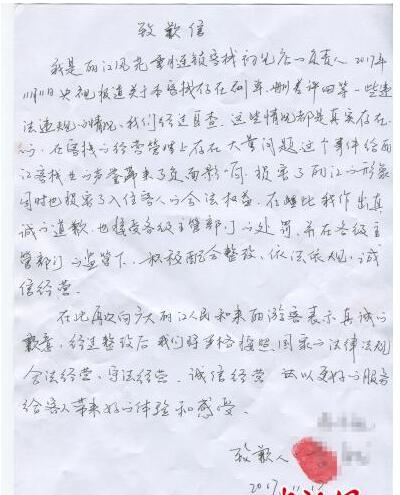 致歉信
我是丽江风花雪月连锁客栈初见店的负责人 2017年
11月11日央视报道关于本客栈存在刷单、删差评的等一些违
法违规的情况、我们经过自查、这些情况都是真实存在
的，在客栈的经营管理上存在大量问题这个事件给丽
江客栈业的声誉带来了负面影响，损害了丽江的形象
同时也损害了入住客人的合法权益，在此我作出真
诚的道歉，也接受各级主管部门的处罚，并在各级主
管部门的监管下，积极配合整改、依法依规，诚
信经营。
在此再次向广大丽江人民和来丽游客表示真诚的
歉意，经过整改后我们将严格按照国家的法律法规
合法经营、守法经营、诚信经营 以更好的服务
给客人带来好的体验和感受。
致歉人
2017.11.12